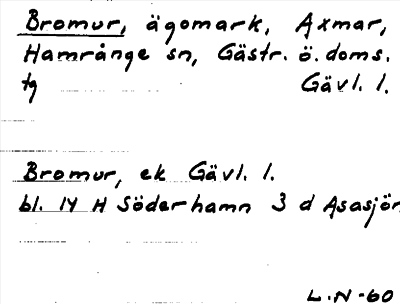 Bromur, ägomark, Axmar,
Hamrånge sn, Gästr. ö. doms.
tg Gävl. l.
Bromur, ek Gävl. l.
bl. 14 H Söderhamn 3 d Asasjön
L.N-60